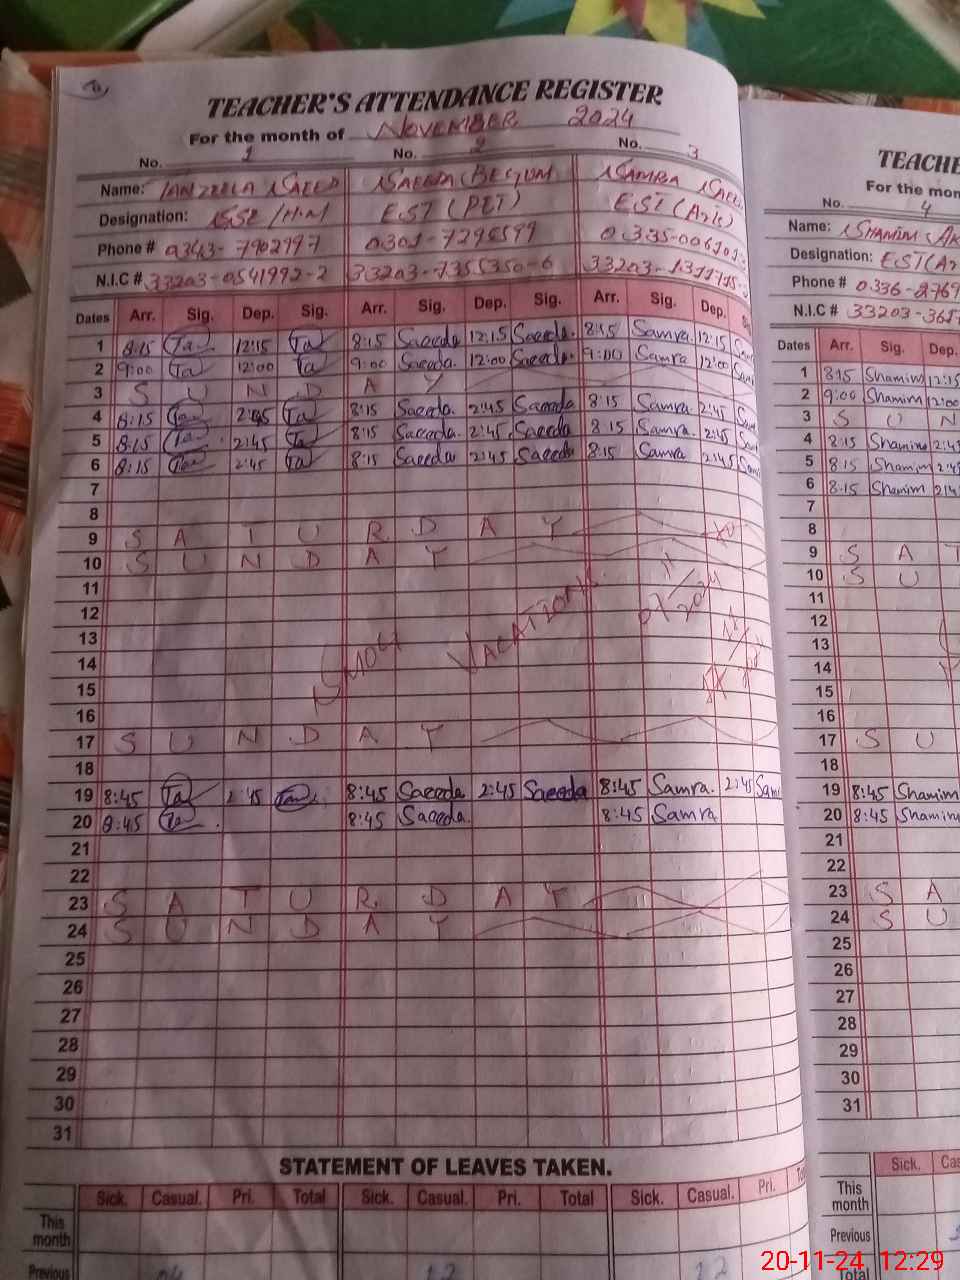 TEACHER'S ATTENDANCE REGISTER
For the month of NOVEMBER 2024
No. 1 No. 2 No. 3
Name: TANZEELA SAEED SAEEDA BEGUM SAMRA
Designation: SSE/H.M EST (PET) EST (Arb)
Phone # 0343-7902997 0301-7296599
N.I.C # 33203-0541992-2 33203-7355350-6
Dates Arr. Sig. Dep. Sig. Arr. Sig. Dep. Sig. Arr. Sig. Dep.
1 8:15 Ta 12:15 Ta 8:15 Saeeda 12:15 Saeeda. 8:15 Samra 12:15
2 9:00 Ta 12:00 Ta 9:00 Saeeda. 12:00 Saeeda. 9:00 Samra 12:00
3 S U N D A Y
4 8:15 Ta 2:45 Ta 8:15 Saeeda. 2:45 Saeeda 8:15 Samra 2:45
5 8:15 Ta 2:45 Ta 8:15 Saeeda. 2:45 Saeeda 8:15 Samra. 2:45
6 8:15 Ta 2:45 Ta 8:15 Saeeda 2:45 Saeeda 8:15 Samra 2:45
7
8
9 S A T U R D A Y
10 S U N D A Y
11
12
13 SMOG VACATIONS
14
15
16
17 S U N D A Y
18
19 8:45 Ta 2:45 Ta 8:45 Saeeda 2:45 Saeeda 8:45 Samra. 2:45
20 8:45 Ta 8:45 Saeeda. 8:45 Samra
21
22
23 S A T U R D A Y
24 S U N D A Y
25
26
27
28
29
30
31
STATEMENT OF LEAVES TAKEN.
Sick. Casual. Pri. Total Sick. Casual. Pri. Total Sick. Casual. Pri.
This month
Previous 04 12 12
No. 4
Name: SHAMIM
Designation:
Phone # 0336-
N.I.C # 33203-
Dates Arr. Sig. Dep.
1 8:15 Shamim 12:15
2 9:00 Shamim 12:00
3 S U N
4 8:15 Shamim 2:45
5 8:15 Shamim 2:45
6 8:15 Shamim 2:45
7
8
9 S A T
10 S U
11
12
13
14
15
16
17 S U
18
19 8:45 Shamim
20 8:45 Shamim
21
22
23 S A
24 S U
25
26
27
28
29
30
31
Sick.
This month
Previous
Total
20-11-24 12:29